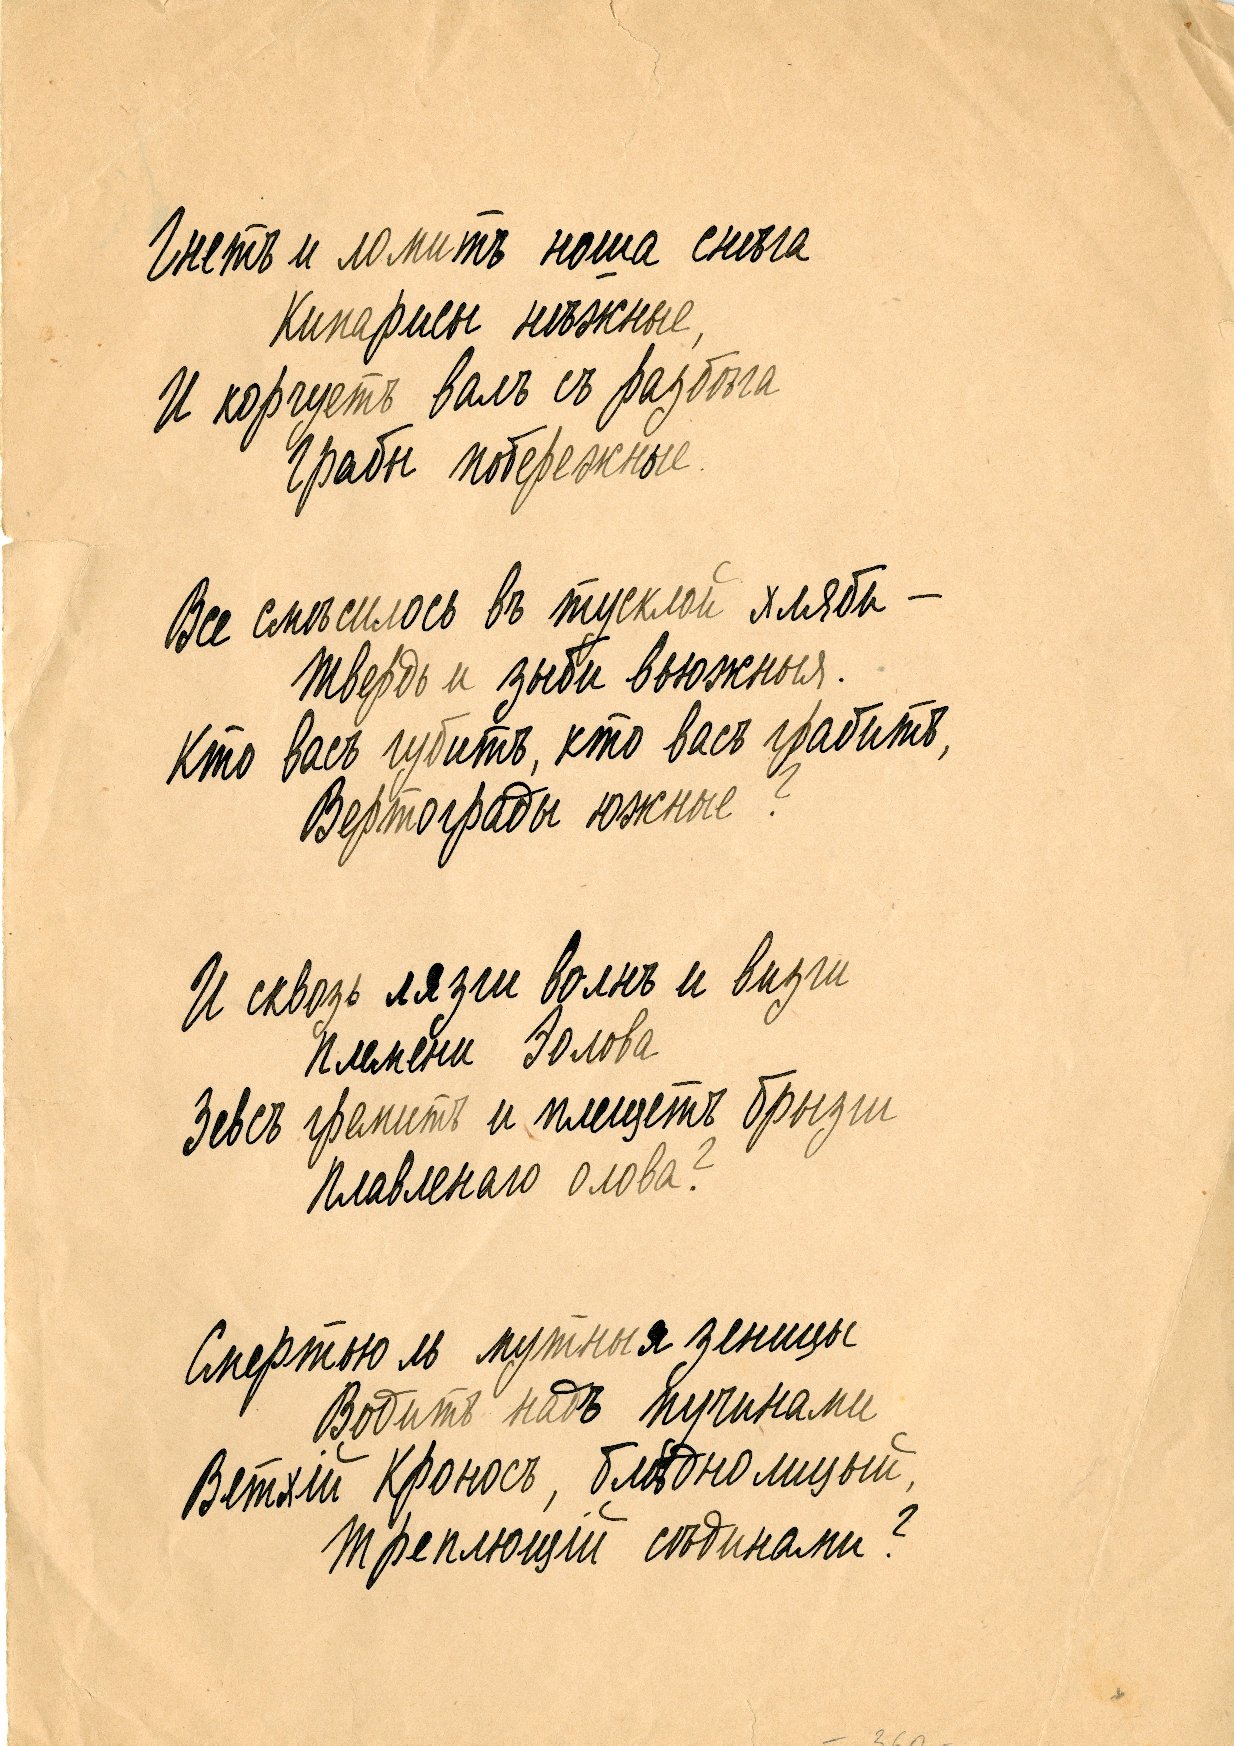 Гнетъ и ломитъ ноша снѣга
Кипарисы нѣжные,
И корчуетъ валъ съ разбѣга
Грабы побережные.
Все смѣсилось въ тусклой хляби —
Твердь и зыби вьюжныя.
Кто васъ губитъ, кто васъ грабитъ,
Вертограды южные?
И сквозь лязги волнъ и визги
Племени Эолова
Зевсъ гремитъ и плещетъ брызги
Плавленаго олова?
Смертью ль мутныя зеницы
Водитъ надъ пучинами
Ветхій Кроносъ, блѣднолицый,
Треплющій сѣдинами?
- 360 -